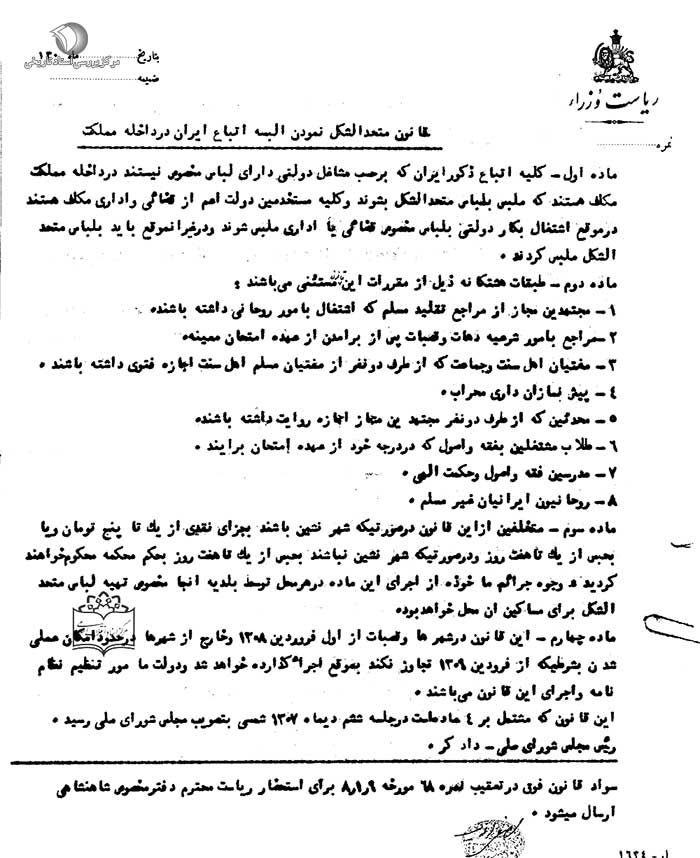 مرکز بررسی اسناد تاریخی
بتاریخ ماه ۱۳۰
ضمیمه
ریاست وزراء
نمره
قانون متحدالشکل نمودن البسه اتباع ایران در داخله مملکت
ماده اول - کلیه اتباع ذکور ایران که برحسب مشاغل دولتی دارای لباس مخصوص نیستند در داخله مملکت
مکلف هستند که ملبس بلباس متحدالشکل بشوند وکلیه مستخدمین دولت اعم از قضائی واداری مکلف هستند
درموقع اشتغال بکار دولتی بلباس مخصوص قضائی یا اداری ملبس شوند ودرغیرانموقع باید بلباس متحد
الشکل ملبس گردند ۰
ماده دوم - طبقات هشتگانه ذیل از مقررات این قانون مستثنی می‌باشند :
۱- مجتهدین مجاز از مراجع تقلید مسلم که اشتغال بامور روحانی داشته باشند۰
۲- مراجع بامور شرعیه دهات وقصبات پس از برامدن از عهده امتحان معینه۰
۳- مفتیان اهل سنت وجماعت که از طرف دونفر از مفتیان مسلم اهل سنت اجازه فتوی داشته باشند ۰
۴- پیش نمازان داری محراب۰
۵- محدثین که از طرف دونفر مجتهدین مجاز اجازه روایت داشته باشند۰
۶- طلاب مشتغلین بفقه واصول که دردرجه خود از عهده امتحان برایند ۰
۷- مدرسین فقه واصول وحکمت الهی ۰
۸- روحانیون ایرانیان غیر مسلم ۰
ماده سوم - متخلفین ازاین قانون درصورتیکه شهر نشین باشند بجزای نقدی از یك تا پنج تومان ویا
بحبس از یك تا هفت روز ودرصورتیکه شهر نشین نباشند بحبس از یك تا هفت روز بحکم محکمه محکوم‌خواهند
گردید ۰ وجوه جرائم ماخوذه از اجرای این ماده درهرمحل توسط بلدیه انجا مخصوص تهیه لباس متحد
الشکل برای مساکین ان محل خواهدبود۰
ماده چهارم - این قانون درشهرها وقصبات از اول فروردین ۱۳۰۸ وخارج از شهرها درحدود امکان عملی
شدن بشرطیکه از فرودین ۱۳۰۹ تجاوز نکند بموقع اجرا گذارده خواهد شد ودولت مامور تنظیم نظام
نامه واجرای این قانون می‌باشند ۰
این قانون که مشتمل بر ۴ ماده‌است درجلسه ششم دیماه ۱۳۰۷ شمسی بتصویب مجلس شورای ملی رسید ۰
رئیس مجلس شورای ملی - دادگر ۰
سواد قانون فوق درتعقیب نمره ۶۸ مورخه ۸٫۱٫۹ برای استحضار ریاست محترم دفترمخصوص شاهنشاهی
ارسال میشود ۰